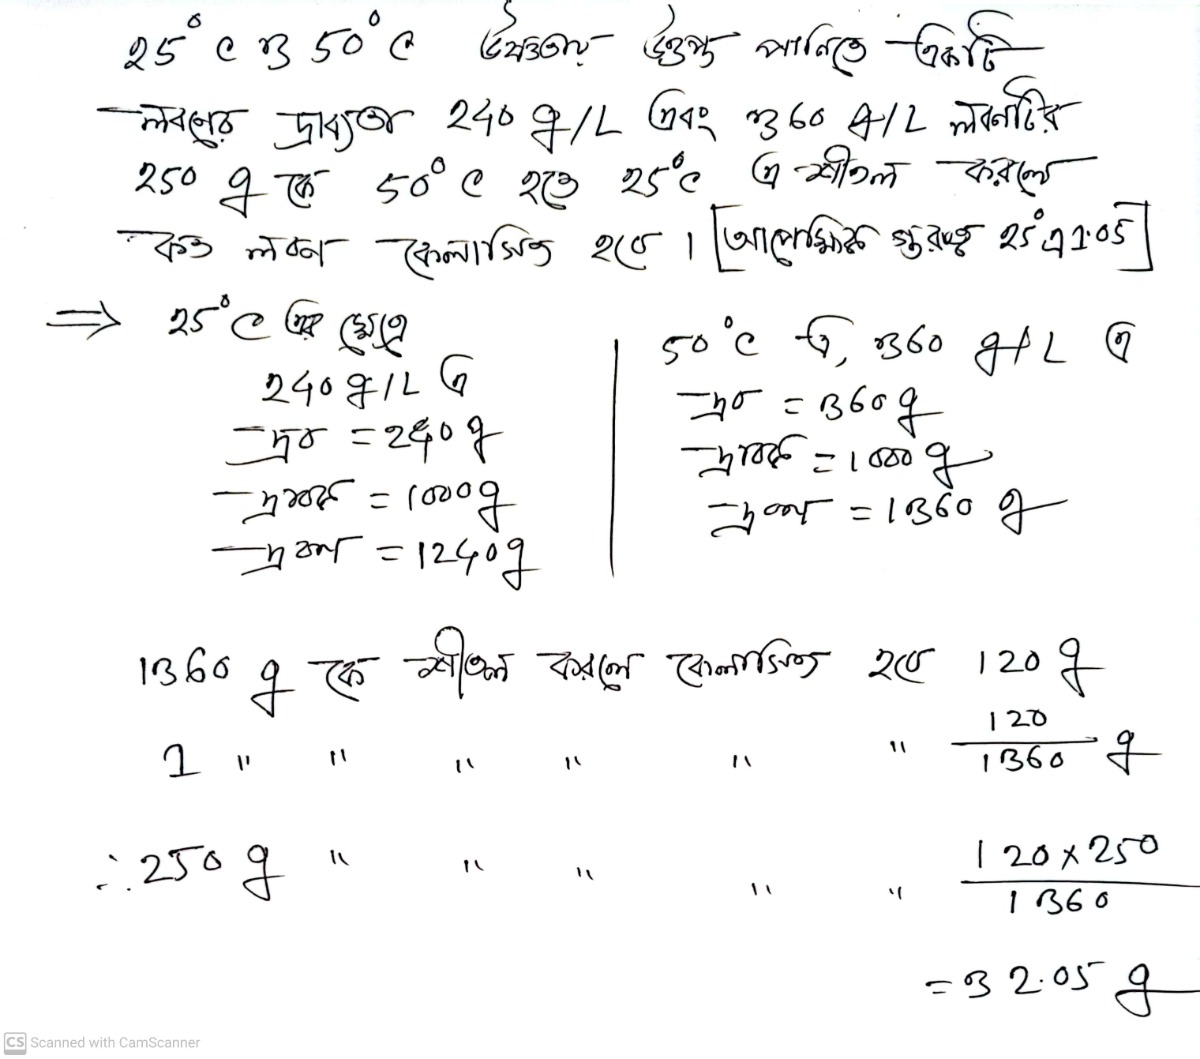 25°C ও 50°C উষ্ণতায় উত্তপ্ত পানিতে একটি
লবণের দ্রাব্যতা 240 g/L এবং ৩60 g/L লবনটির
250 g কে 50°C হতে 25°C এ শীতল করলে
কত লবন কেলাসিত হবে । [আপেক্ষিক গুরুত্ব 25° এ 1.05]
⇒ 25°C এর ক্ষেত্রে
240 g/L এ
দ্রব = 240 g
দ্রাবক = 1000 g
দ্রবণ = 1240 g
50°C এ, ৩60 g/L এ
দ্রব = ৩60 g
দ্রাবক = 1000 g
দ্রবণ = 1৩60 g
1৩60 g কে শীতল করলে কেলাসিত হবে 120 g
1 " " " " " " 120/1৩60 g
∴ 250 g " " " " " 120×250/1৩60
= ৩2.05 g
CS Scanned with CamScanner